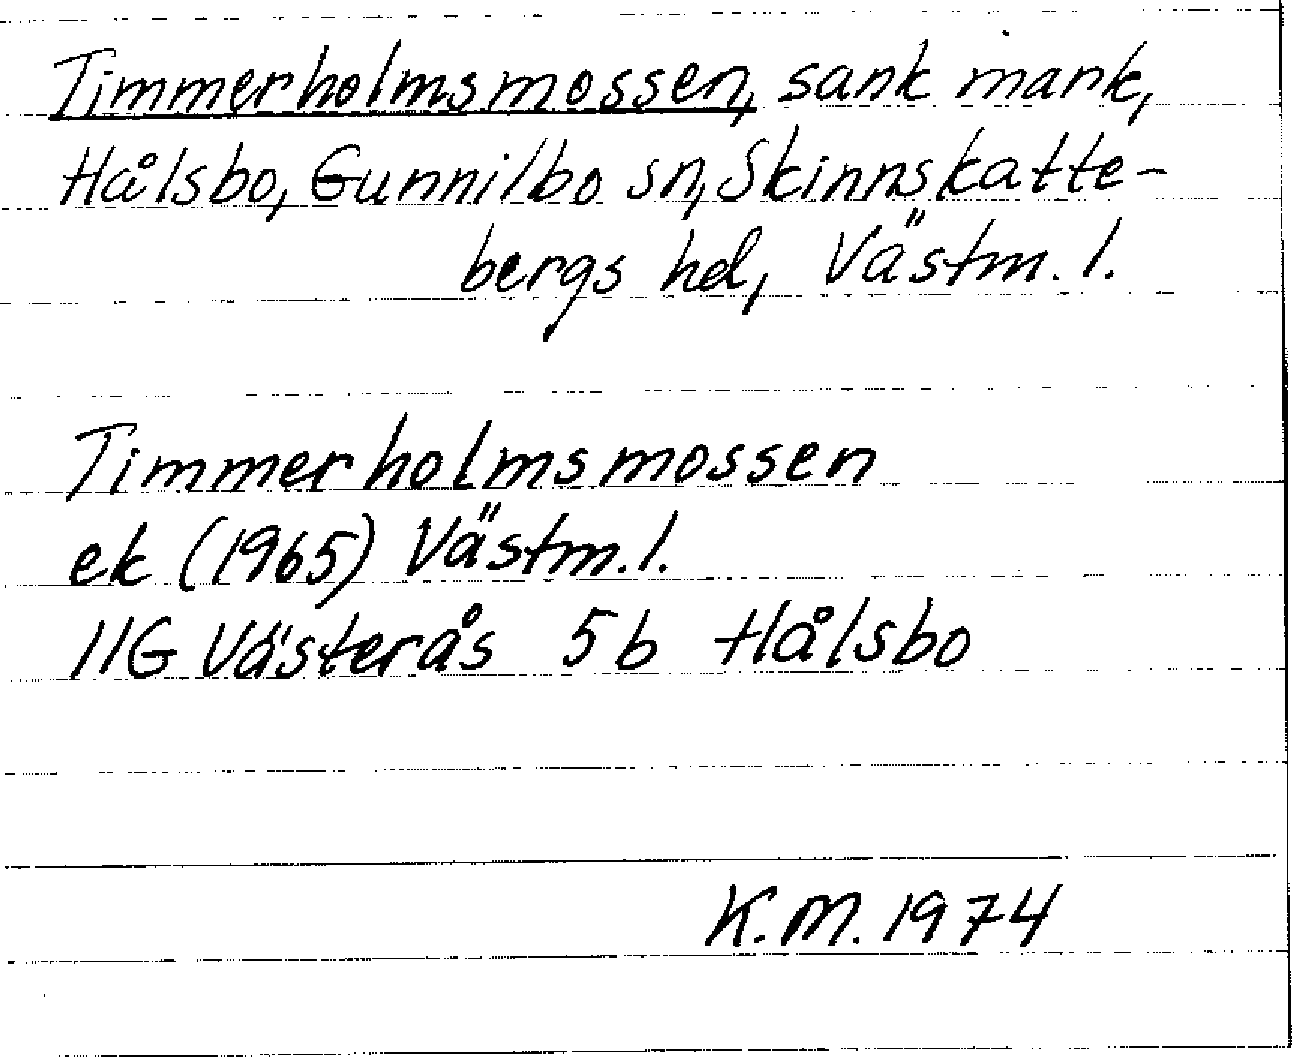 Timmerholmsmossen, sank mark,
Hålsbo, Gunnilbo sn, Skinnskatte-
bergs hd, Västm. l.
Timmerholmsmossen
ek (1965) Västm. l.
11G Västerås 5b Hålsbo
K.M. 1974